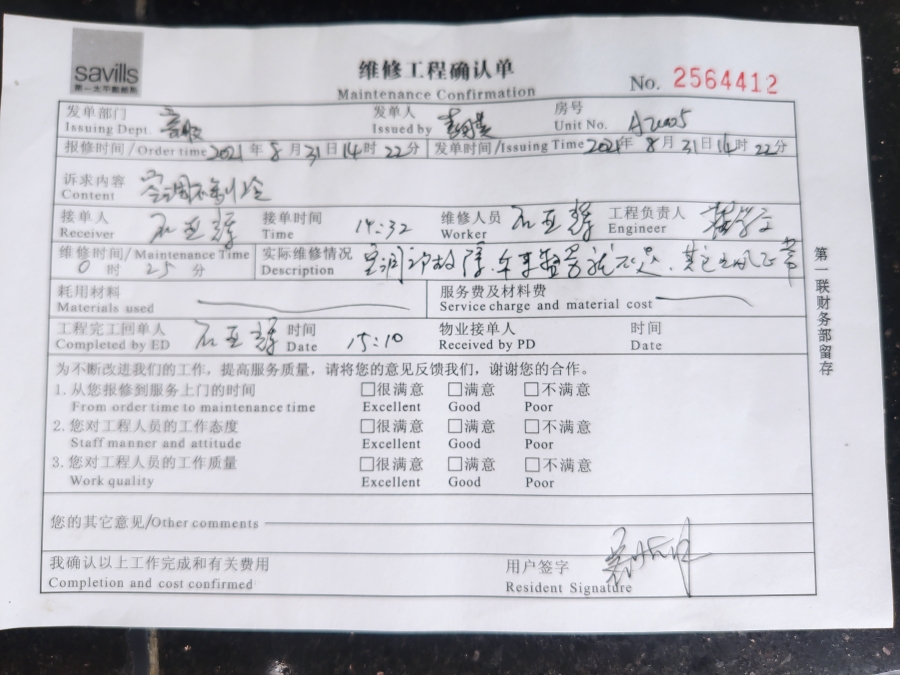 savills
第一太平戴维斯
维修工程确认单
Maintenance Confirmation
No. 2564412
发单部门 发单人 房号
Issuing Dept. Issued by Unit No.
报修时间/Order time 2021年8月31日14时22分 发单时间/Issuing Time 2021年8月31日14时22分
诉求内容 空调不制冷
Content
接单人 石亚辉 接单时间 14:32 维修人员 石亚辉 工程负责人
Receiver Time Worker Engineer
维修时间/Maintenance Time 实际维修情况
0时25分 Description 空调
耗用材料 服务费及材料费
Materials used Service charge and material cost
工程完工回单人 石亚辉 时间 15:10 物业接单人 时间
Completed by ED Date Received by PD Date
为不断改进我们的工作，提高服务质量，请将您的意见反馈我们，谢谢您的合作。
1. 从您报修到服务上门的时间 □很满意 □满意 □不满意
From order time to maintenance time Excellent Good Poor
2. 您对工程人员的工作态度 □很满意 □满意 □不满意
Staff manner and attitude Excellent Good Poor
3. 您对工程人员的工作质量 □很满意 □满意 □不满意
Work quality Excellent Good Poor
您的其它意见/Other comments
我确认以上工作完成和有关费用 用户签字
Completion and cost confirmed Resident Signature
第一联财务部留存